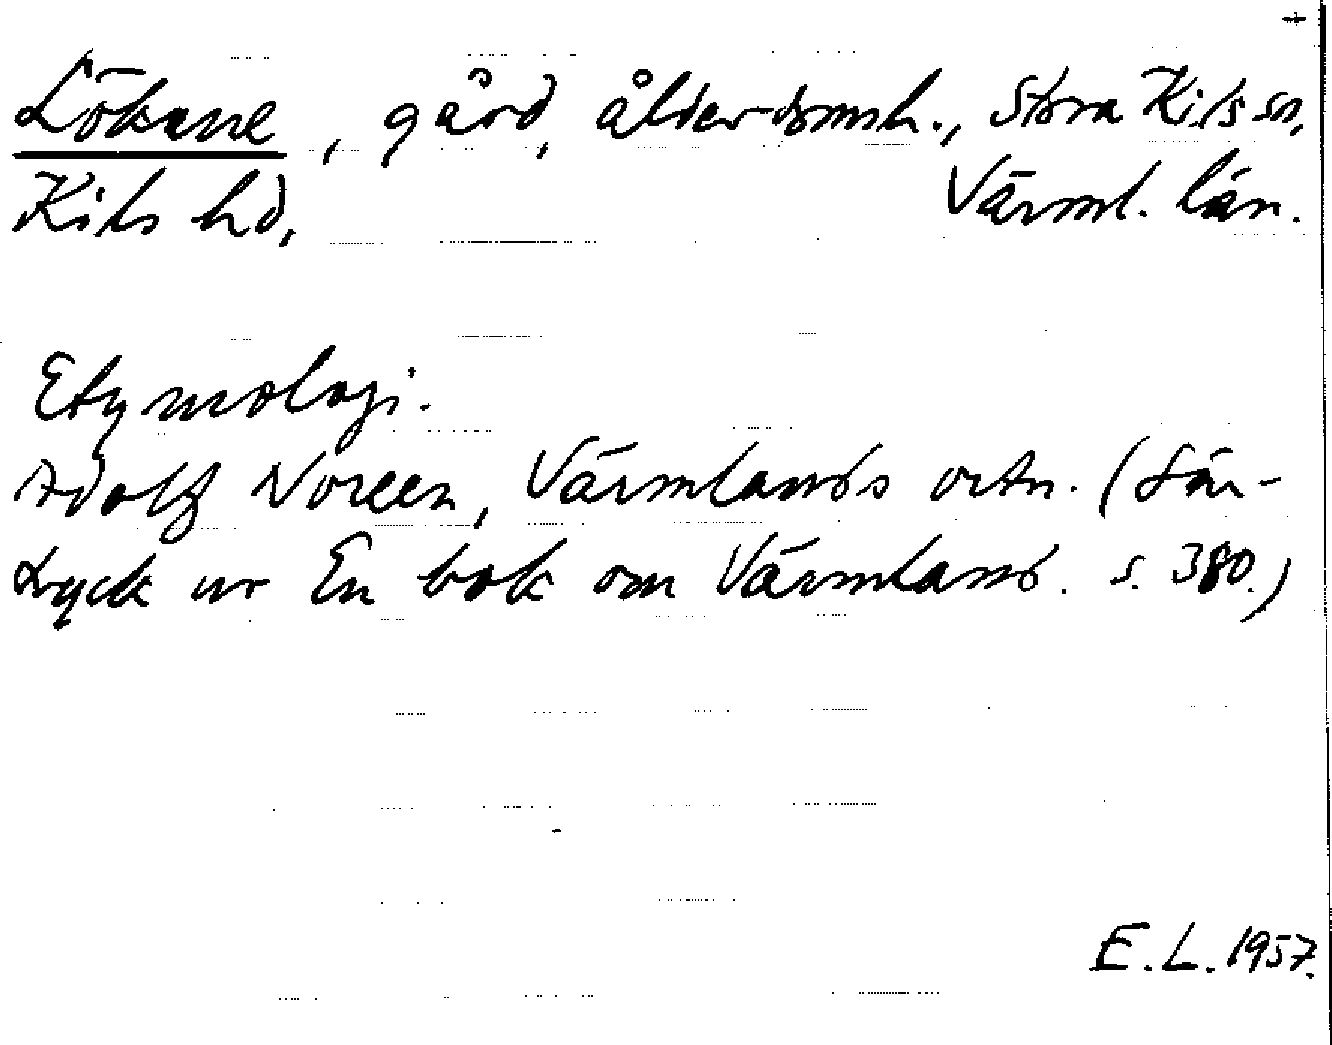 +
Lökene, gård, ålderdomsh., Stora Kils sn,
Kils hd, Värml. län.
Etymologi.
Adolf Noreen, Värmlands ortn. (Sär-
tryck ur En bok om Värmland. s. 380.)
E.L. 1957.